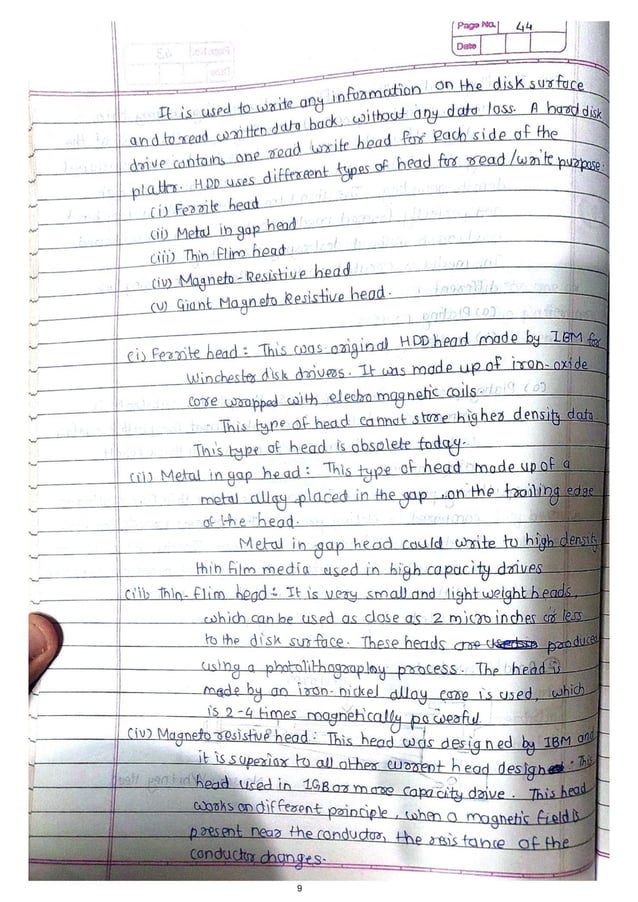 Page No. 44
Date
It is used to write any information on the disk surface
and to read written data back without any data loss. A hard disk
drive contains one read write head for each side of the
platter. HDD uses different types of head for read/write purpose.
(i) Ferrite head
(ii) Metal in gap head
(iii) Thin flim head
(iv) Magneto-Resistive head
(v) Giant Magneto Resistive head.
(i) Ferrite head : This was original HDD head made by IBM for
Winchester disk drivers. It was made up of iron-oxide
core wrapped with electro magnetic coils
This type of head cannot store higher density data
This type of head is obsolete today.
(ii) Metal in gap head : This type of head made up of a
metal alloy placed in the gap , on the trailing edge
of the head.
Metal in gap head could write to high density
thin film media used in high capacity drives
(iii) Thin-flim head : It is very small and light weight heads,
which can be used as close as 2 micro inches or less
to the disk surface. These heads are produced
using a photolithography process. The head is
made by an iron-nickel alloy core is used, which
is 2-4 times magnetically powerful
(iv) Magneto resistive head : This head was designed by IBM and
it is superior to all other current head design. This
head used in 1GB or more capacity drive. This head
works on different principle, when a magnetic field is
present near the conductor, the resistance of the
conductor changes.
9